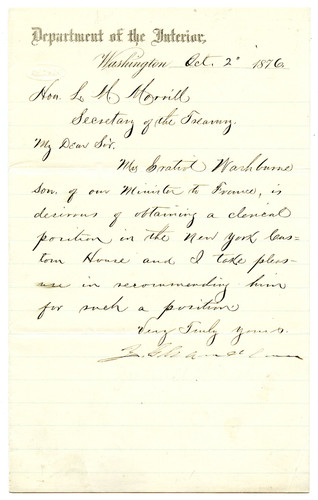 Department of the Interior,
Washington Oct. 2d 1876.
Hon. L. M. Morrill
Secretary of the Treasury.
My Dear Sir.
Mr. Gratiot Washburne
Son of our Minister to France, is
desirous of obtaining a clerical
position in the New York Cus-
tom House and I take pleas-
ure in recommending him
for such a position
Very Truly Yours.